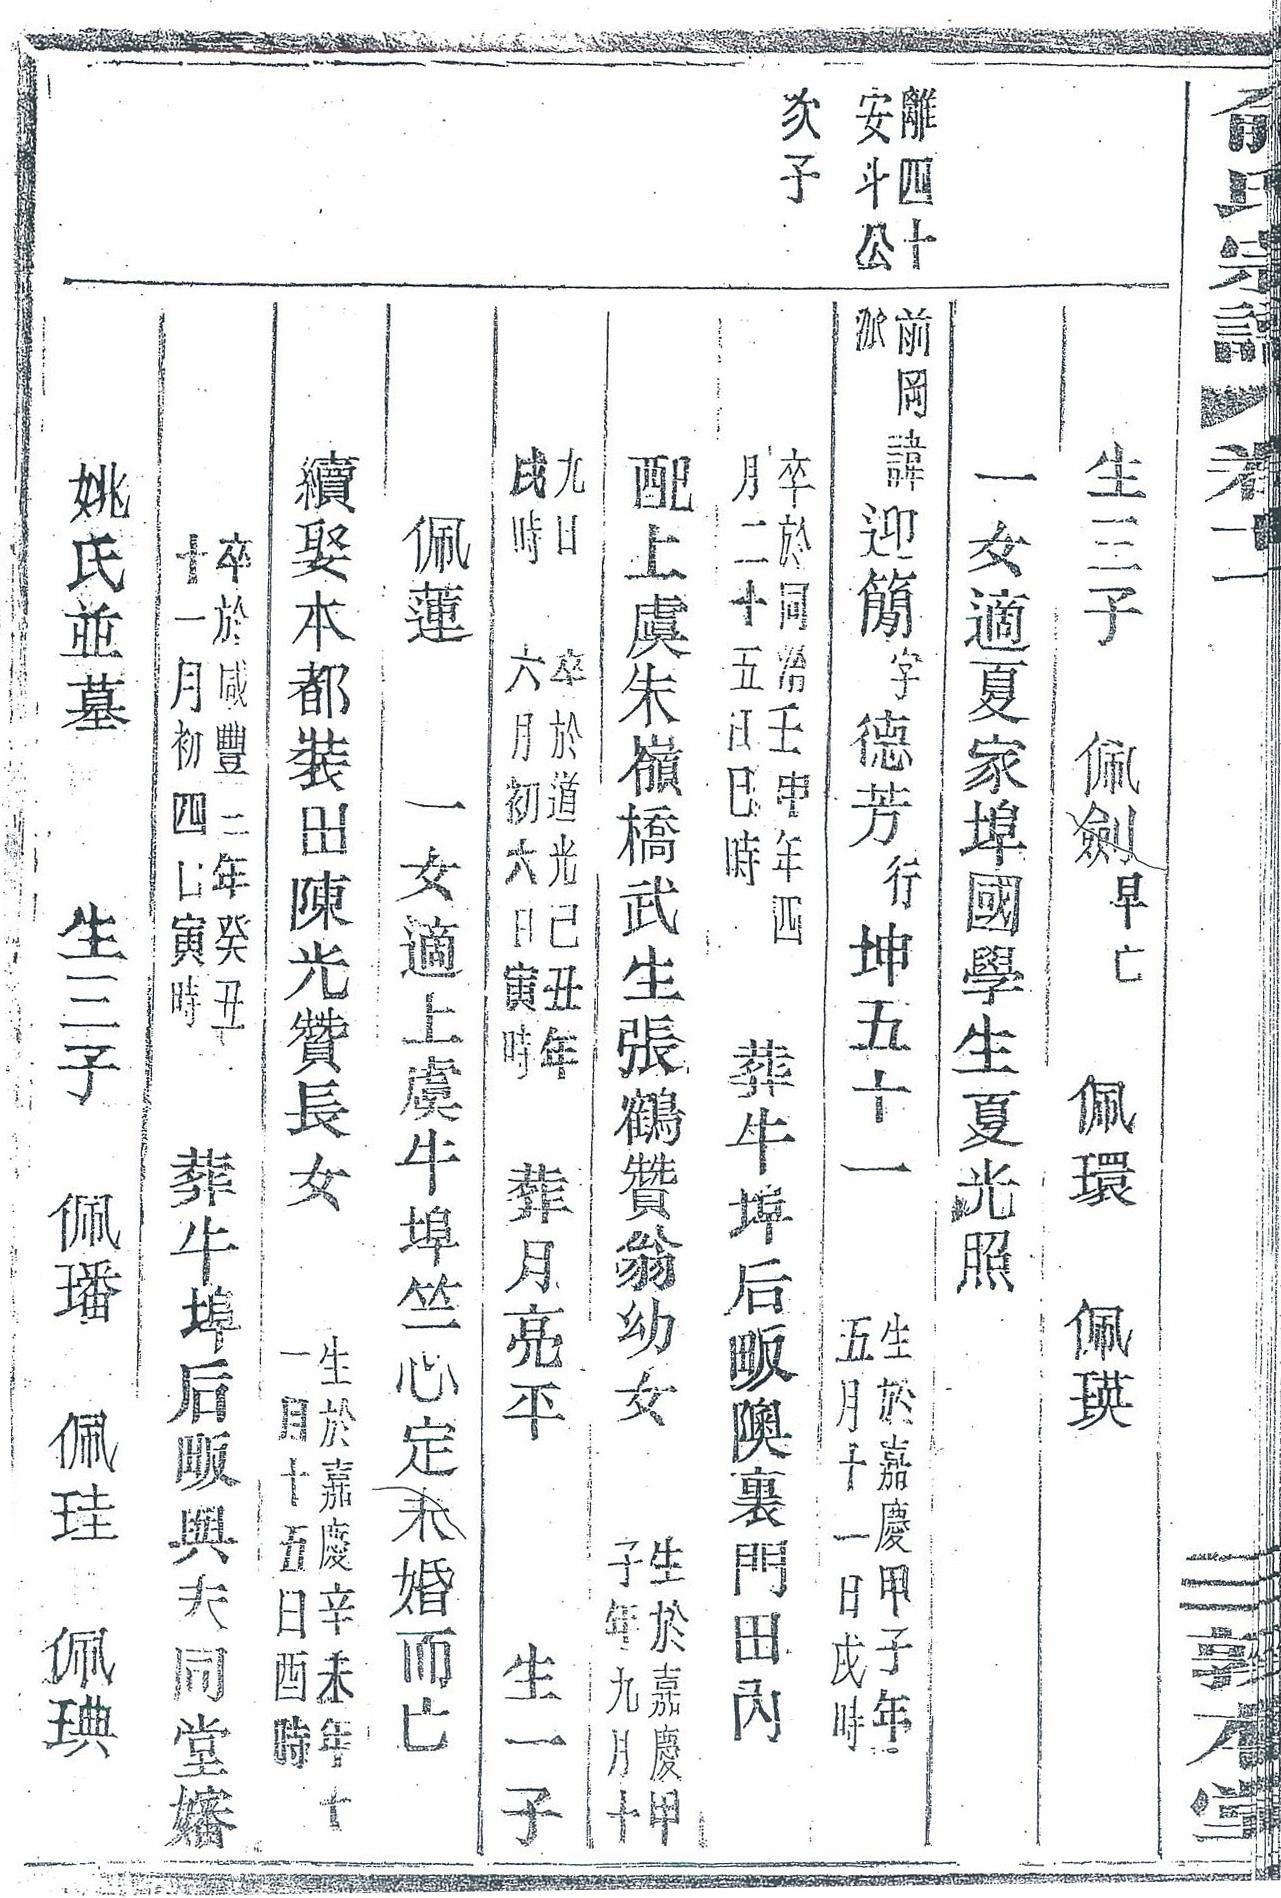 俞氏宗譜 卷十一 敦本堂
生三子 佩劍早亡 佩環 佩瑛
一女適夏家埠國學生夏光照
離四十
安斗公
次子
前岡派諱迎簡字德芳行坤五十一 生於嘉慶甲子年五月十一日戌時
卒於同治壬申年四月二十五日巳時 葬牛埠后畈隩裏門田內
配上虞朱嶺橋武生張鶴贊翁幼女 生於嘉慶甲子年九月十
九日戌時 卒於道光己丑年六月初六日寅時 葬月亮平 生一子
佩蓮 一女適上虞牛埠竺心定未婚而亡
續娶本都裝田陳光贊長女 生於嘉慶辛未年十一月十五日酉時
卒於咸豐三年癸丑十一月初四日寅時 葬牛埠后畈與夫同堂嬸
姚氏並墓 生三子 佩璠 佩珪 佩琠